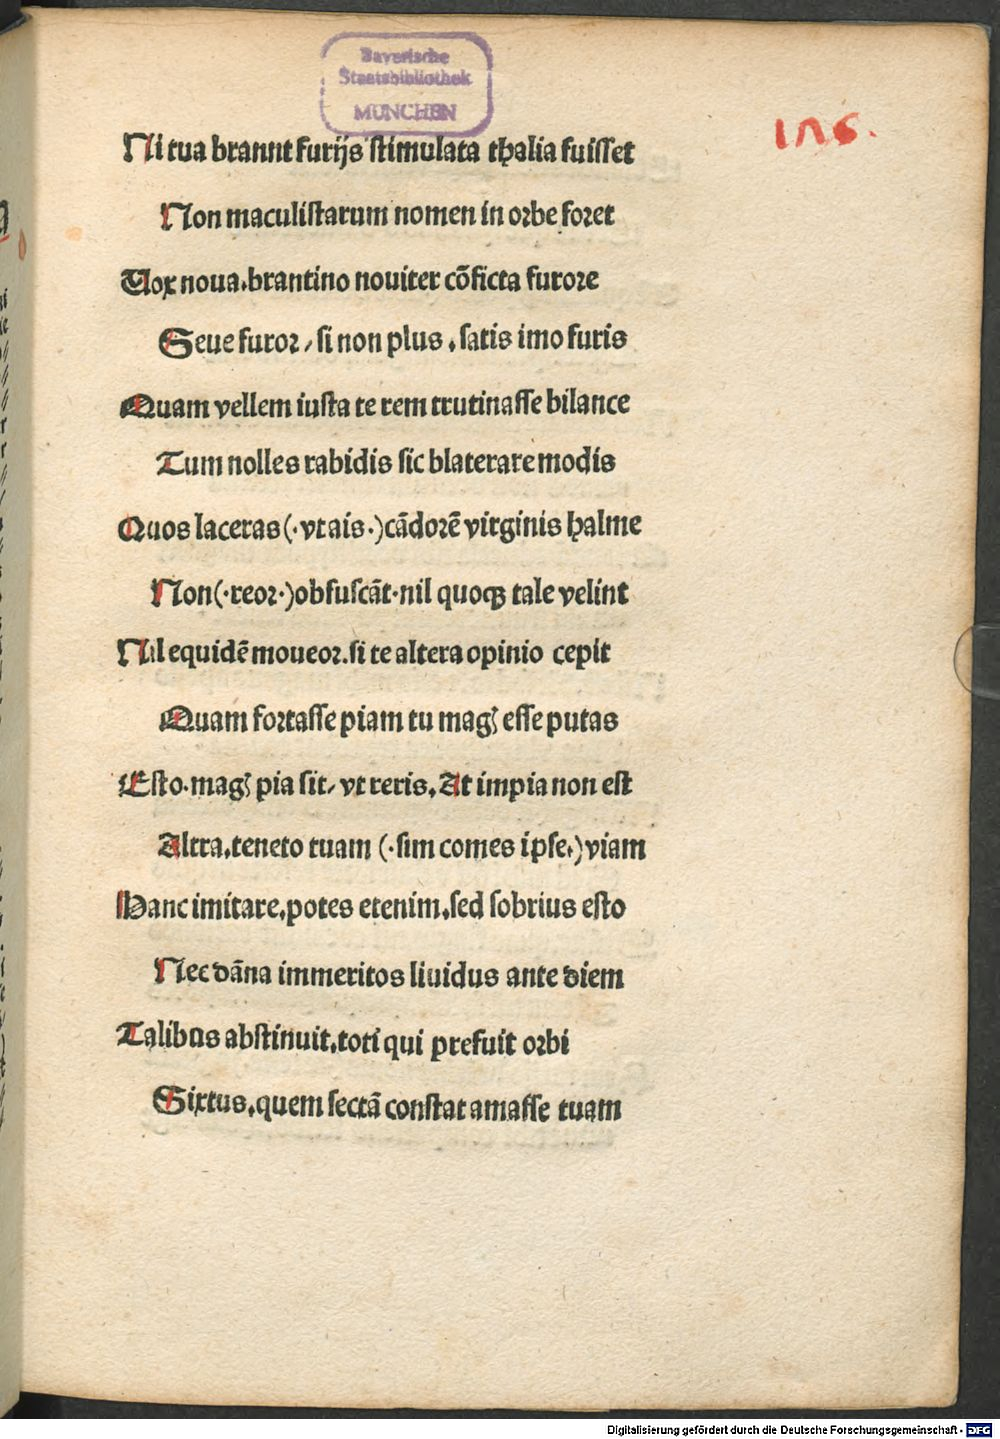 Bayerische
Staatsbibliothek
MÜNCHEN
176.
Ni tua brannt furijs stimulata thalia fuisset
Non maculistarum nomen in orbe foret
Vox noua.brantino nouiter cōficta furore
Seue furor / si non plus . satis imo furis
Quam vellem iusta te rem trutinasse bilance
Tum nolles rabidis sic blaterare modis
Quos laceras(·vt ais·)cādorē virginis halme
Non(·reor·)obfuscāt·nil quoqꝫ tale velint
Nil equidē moueor.si te altera opinio cepit
Quam fortasse piam tu magꝭ esse putas
Esto·magꝭ pia sit/ vt reris. At impia non est
Altra.teneto tuam (·sim comes ipse.)viam
Hanc imitare.potes etenim.sed sobrius esto
Nec dāna immeritos liuidus ante diem
Talibus abstinuit.toti qui prefuit orbi
Sixtus.quem sectā constat amasse tuam
Digitalisierung gefördert durch die Deutsche Forschungsgemeinschaft - DFG